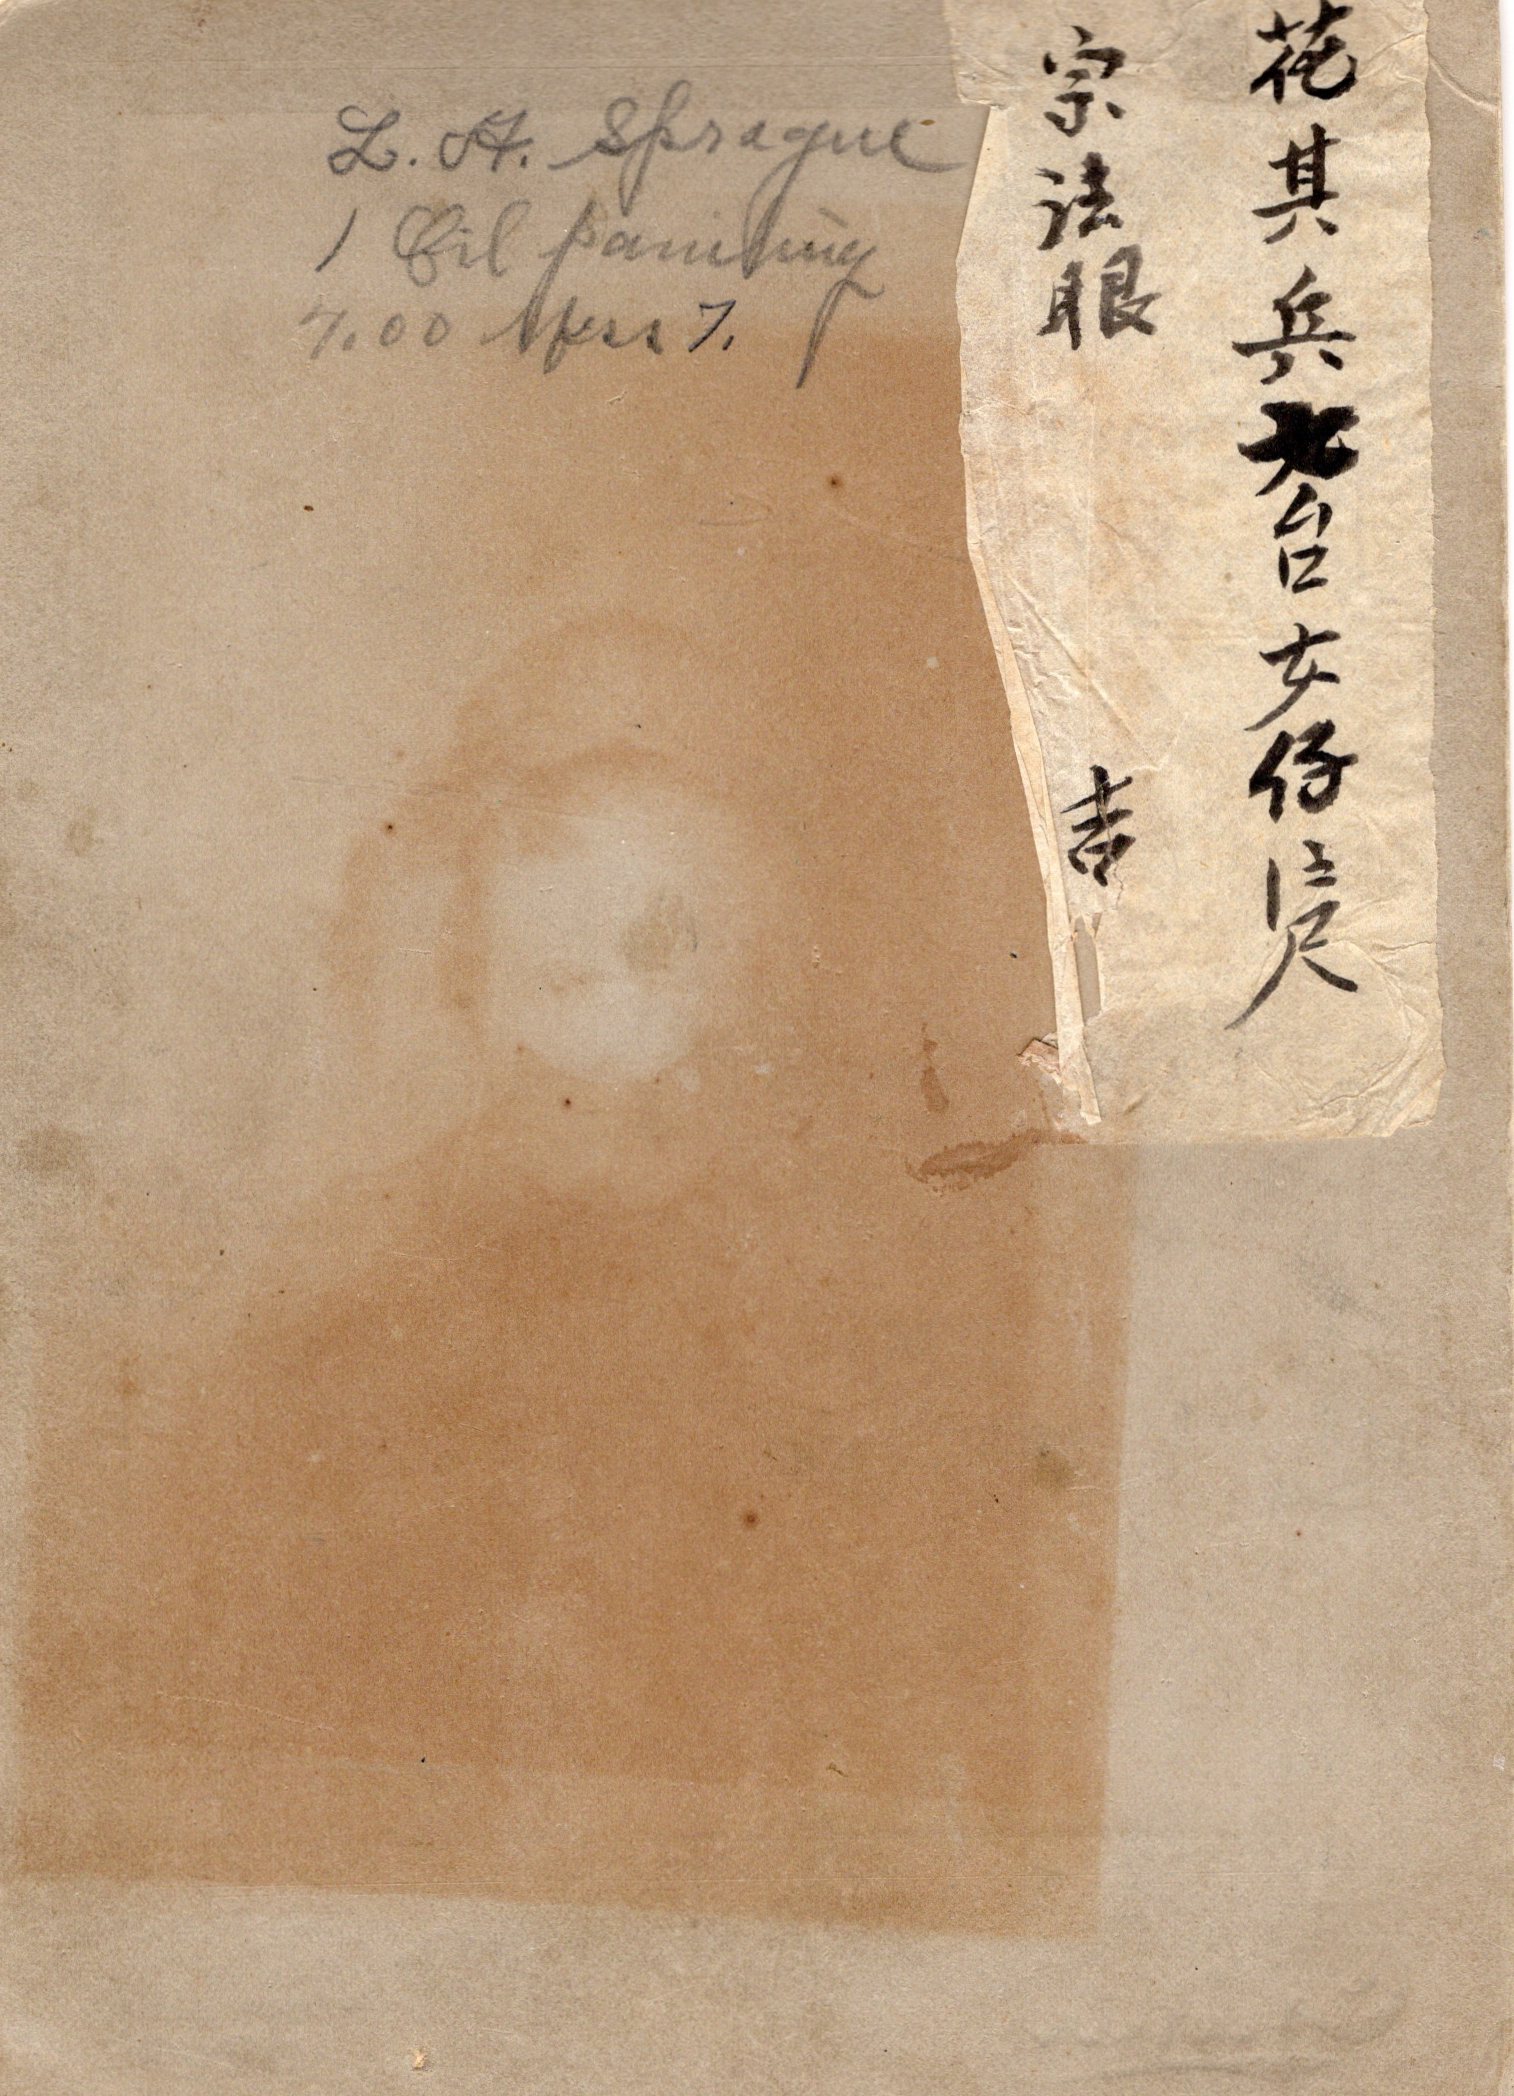 L. H. Sprague
1 Oil painting
7.00 Mex 7.
花其兵台女仔
宗法眼
吉